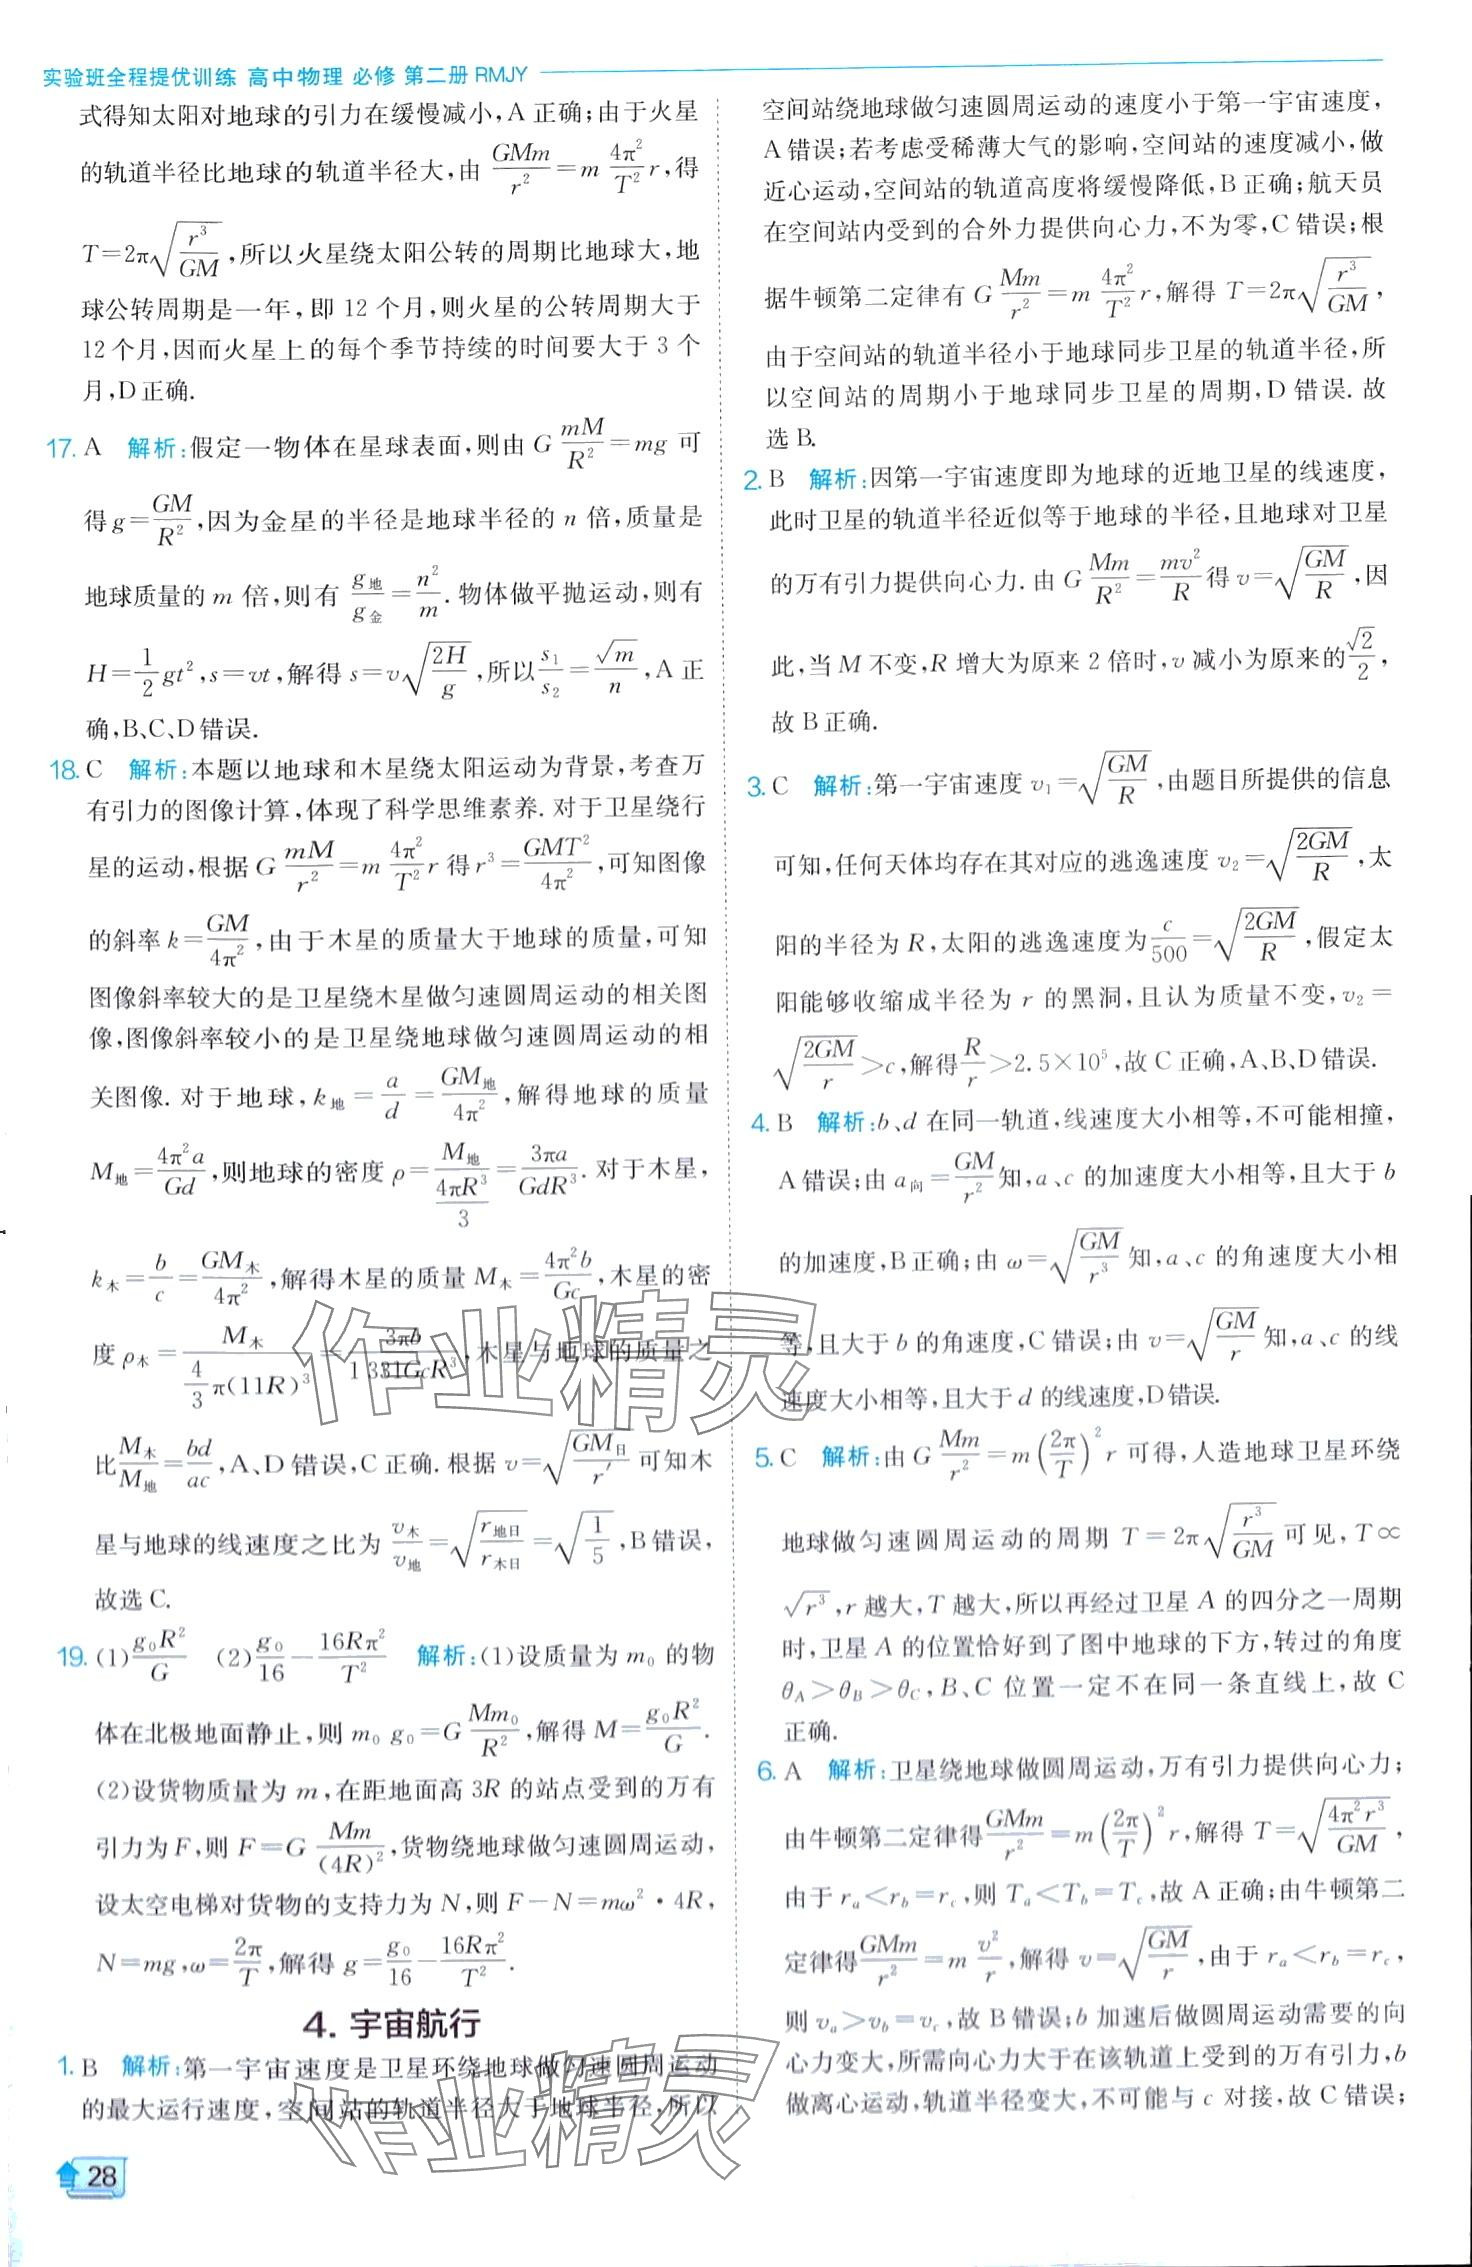 实验班全程提优训练 高中物理 必修 第二册 RMJY
式得知太阳对地球的引力在缓慢减小,A 正确;由于火星
的轨道半径比地球的轨道半径大,由 $\frac{GMm}{r^2}=m\frac{4π^2}{T^2}r$,得
$T=2π\sqrt{\frac{r^3}{GM}}$,所以火星绕太阳公转的周期比地球大,地
球公转周期是一年,即 12 个月,则火星的公转周期大于
12 个月,因而火星上的每个季节持续的时间要大于 3 个
月,D 正确.
17. A 解析:假定一物体在星球表面,则由 $G\frac{mM}{R^2}=mg$ 可
得 $g=\frac{GM}{R^2}$,因为金星的半径是地球半径的 n 倍,质量是
地球质量的 m 倍,则有 $\frac{g_地}{g_金}=\frac{n^2}{m}$. 物体做平抛运动,则有
$H=\frac{1}{2}gt^2$,s=vt,解得 $s=v\sqrt{\frac{2H}{g}}$,所以 $\frac{s_1}{s_2}=\frac{\sqrt{m}}{n}$,A 正
确,B、C、D 错误.
18. C 解析:本题以地球和木星绕太阳运动为背景,考查万
有引力的图像计算,体现了科学思维素养. 对于卫星绕行
星的运动,根据 $G\frac{mM}{r^2}=m\frac{4π^2}{T^2}r$ 得 $r^3=\frac{GMT^2}{4π^2}$,可知图像
的斜率 $k=\frac{GM}{4π^2}$,由于木星的质量大于地球的质量,可知
图像斜率较大的是卫星绕木星做匀速圆周运动的相关图
像,图像斜率较小的是卫星绕地球做匀速圆周运动的相
关图像. 对于地球,$k_地=\frac{a}{d}=\frac{GM_地}{4π^2}$,解得地球的质量
$M_地=\frac{4π^2a}{Gd}$,则地球的密度 $ρ=\frac{M_地}{\frac{4πR^3}{3}}=\frac{3πa}{GdR^3}$. 对于木星,
$k_木=\frac{b}{c}=\frac{GM_木}{4π^2}$,解得木星的质量 $M_木=\frac{4π^2b}{Gc}$,木星的密
度 $ρ_木=\frac{M_木}{\frac{4}{3}π(11R)^3}=\frac{3πb}{1 331GcR^3}$,木星与地球的质量之
比 $\frac{M_木}{M_地}=\frac{bd}{ac}$,A、D 错误,C 正确. 根据 $v=\sqrt{\frac{GM_日}{r'}}$ 可知木
星与地球的线速度之比为 $\frac{v_木}{v_地}=\sqrt{\frac{r_{地日}}{r_{木日}}}=\sqrt{\frac{1}{5}}$,B 错误,
故选 C.
19. (1) $\frac{g_0R^2}{G}$ (2) $\frac{g_0}{16}-\frac{16Rπ^2}{T^2}$ 解析:(1)设质量为 $m_0$ 的物
体在北极地面静止,则 $m_0g_0=G\frac{Mm_0}{R^2}$,解得 $M=\frac{g_0R^2}{G}$.
(2)设货物质量为 m,在距地面高 3R 的站点受到的万有
引力为 F,则 $F=G\frac{Mm}{(4R)^2}$,货物绕地球做匀速圆周运动,
设太空电梯对货物的支持力为 N,则 $F-N=mω^2·4R$,
$N=mg$,$ω=\frac{2π}{T}$,解得 $g=\frac{g_0}{16}-\frac{16Rπ^2}{T^2}$.
4. 宇宙航行
1. B 解析:第一宇宙速度是卫星环绕地球做匀速圆周运动
的最大运行速度,空间站的轨道半径大于地球半径,所以
28
空间站绕地球做匀速圆周运动的速度小于第一宇宙速度,
A 错误;若考虑受稀薄大气的影响,空间站的速度减小,做
近心运动,空间站的轨道高度将缓慢降低,B 正确;航天员
在空间站内受到的合外力提供向心力,不为零,C 错误;根
据牛顿第二定律有 $G\frac{Mm}{r^2}=m\frac{4π^2}{T^2}r$,解得 $T=2π\sqrt{\frac{r^3}{GM}}$,
由于空间站的轨道半径小于地球同步卫星的轨道半径,所
以空间站的周期小于地球同步卫星的周期,D 错误. 故
选 B.
2. B 解析:因第一宇宙速度即为地球的近地卫星的线速度,
此时卫星的轨道半径近似等于地球的半径,且地球对卫星
的万有引力提供向心力. 由 $G\frac{Mm}{R^2}=\frac{mv^2}{R}$ 得 $v=\sqrt{\frac{GM}{R}}$,因
此,当 M 不变,R 增大为原来 2 倍时,v 减小为原来的 $\frac{\sqrt{2}}{2}$,
故 B 正确.
3. C 解析:第一宇宙速度 $v_1=\sqrt{\frac{GM}{R}}$,由题目所提供的信息
可知,任何天体均存在其对应的逃逸速度 $v_2=\sqrt{\frac{2GM}{R}}$,太
阳的半径为 R,太阳的逃逸速度为 $\frac{c}{500}=\sqrt{\frac{2GM}{R}}$,假定太
阳能够收缩成半径为 r 的黑洞,且认为质量不变,$v_2=$
$\sqrt{\frac{2GM}{r}}>c$,解得 $\frac{R}{r}>2.5×10^5$,故 C 正确,A、B、D 错误.
4. B 解析:b、d 在同一轨道,线速度大小相等,不可能相撞,
A 错误;由 $a_向=\frac{GM}{r^2}$ 知,a、c 的加速度大小相等,且大于 b
的加速度,B 正确;由 $ω=\sqrt{\frac{GM}{r^3}}$ 知,a、c 的角速度大小相
等,且大于 b 的角速度,C 错误;由 $v=\sqrt{\frac{GM}{r}}$ 知,a、c 的线
速度大小相等,且大于 d 的线速度,D 错误.
5. C 解析:由 $G\frac{Mm}{r^2}=m\left(\frac{2π}{T}\right)^2r$ 可得,人造地球卫星环绕
地球做匀速圆周运动的周期 $T=2π\sqrt{\frac{r^3}{GM}}$ 可见,T∝
$\sqrt{r^3}$,r 越大,T 越大,所以再经过卫星 A 的四分之一周期
时,卫星 A 的位置恰好到了图中地球的下方,转过的角度
$θ_A>θ_B>θ_C$,B、C 位置一定不在同一条直线上,故 C
正确.
6. A 解析:卫星绕地球做圆周运动,万有引力提供向心力;
由牛顿第二定律得 $\frac{GMm}{r^2}=m\left(\frac{2π}{T}\right)^2r$,解得 $T=\sqrt{\frac{4π^2r^3}{GM}}$,
由于 $r_a<r_b=r_c$,则 $T_a<T_b=T_c$,故 A 正确;由牛顿第二
定律得 $\frac{GMm}{r^2}=m\frac{v^2}{r}$,解得 $v=\sqrt{\frac{GM}{r}}$,由于 $r_a<r_b=r_c$,
则 $v_a>v_b=v_c$,故 B 错误;b 加速后做圆周运动需要的向
心力变大,所需向心力大于在该轨道上受到的万有引力,b
做离心运动,轨道半径变大,不可能与 c 对接,故 C 错误;
作业精灵
作业精灵